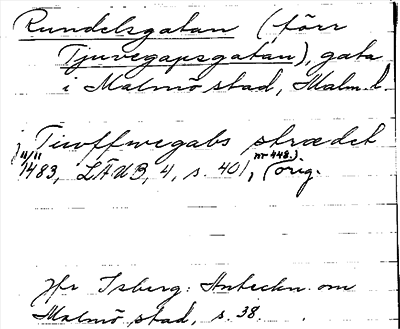 Rundelsgatan (förr
Tjuvegapsgatan), gata
i Malmö stad, Malm. l.
j Tiwffwegabs strædet
11/11 1483, LÄUB, 4, s. 401, (nr 448.) orig.
Jfr Isberg: Anteckn. om
Malmö stad, s. 38.